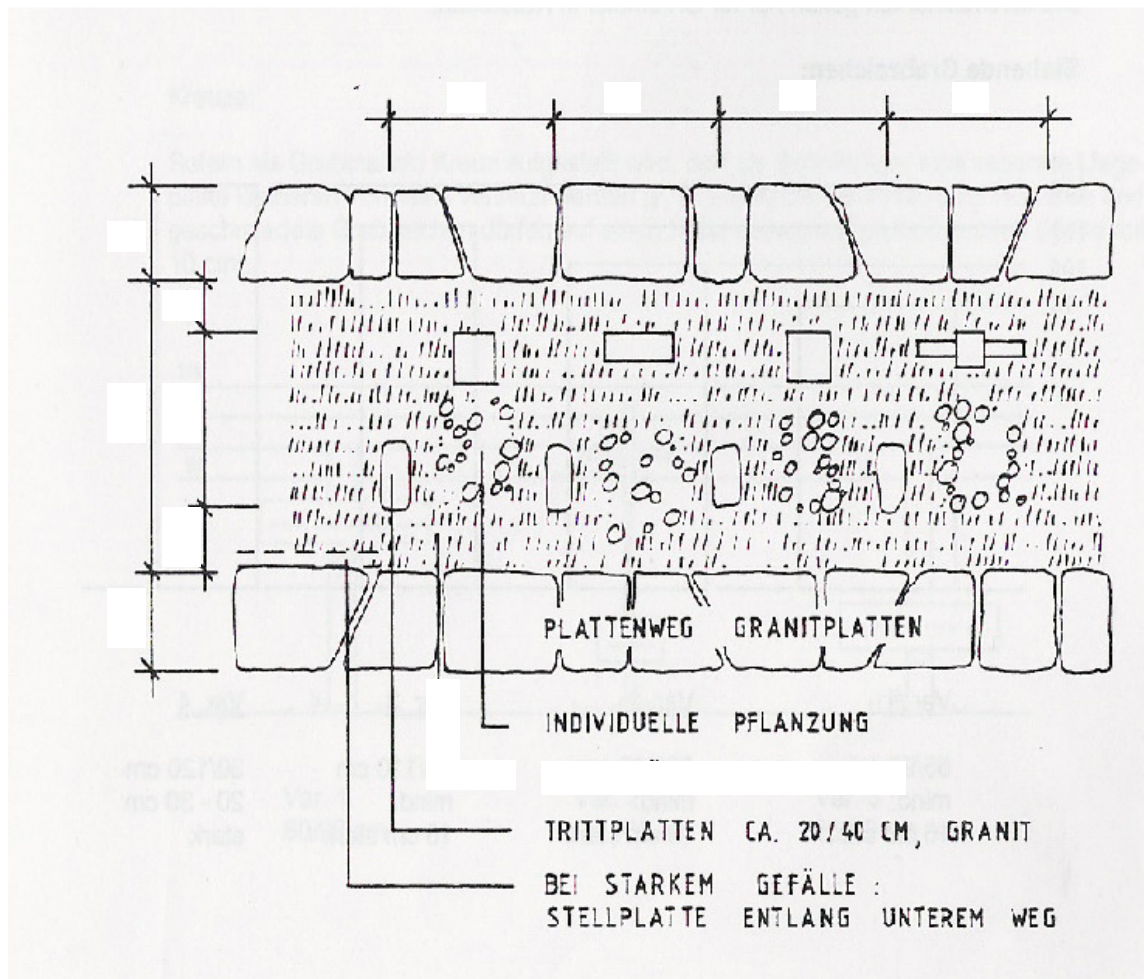 PLATTENWEG GRANITPLATTEN
INDIVIDUELLE PFLANZUNG
TRITTPLATTEN CA. 20/40 CM, GRANIT
BEI STARKEM GEFÄLLE :
STELLPLATTE ENTLANG UNTEREM WEG